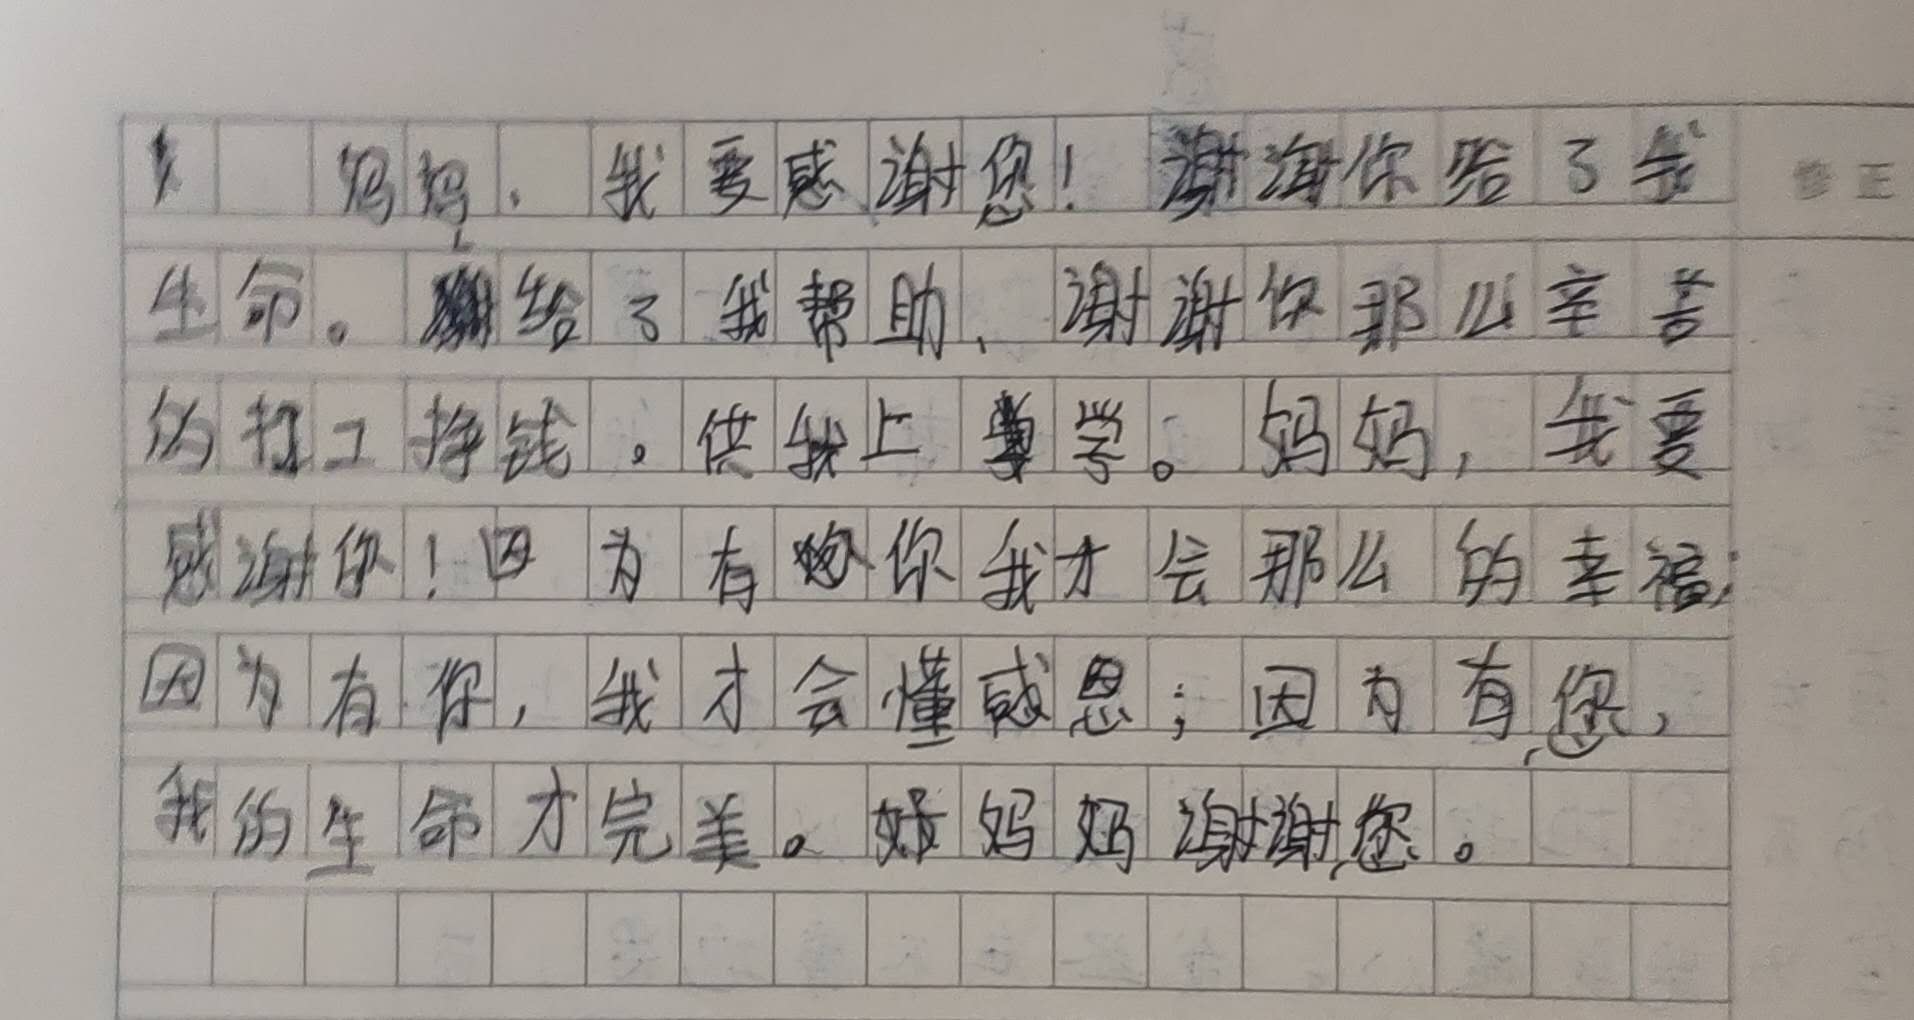 妈妈，我要感谢您！谢谢你给了我
生命。谢给了我帮助、谢谢你那么辛苦
的打工挣钱，供我上学。妈妈，我要
感谢你！因为有你我才会那么的幸福；
因为有你，我才会懂感恩；因为有您，
我的生命才完美。好妈妈谢谢您。
修正